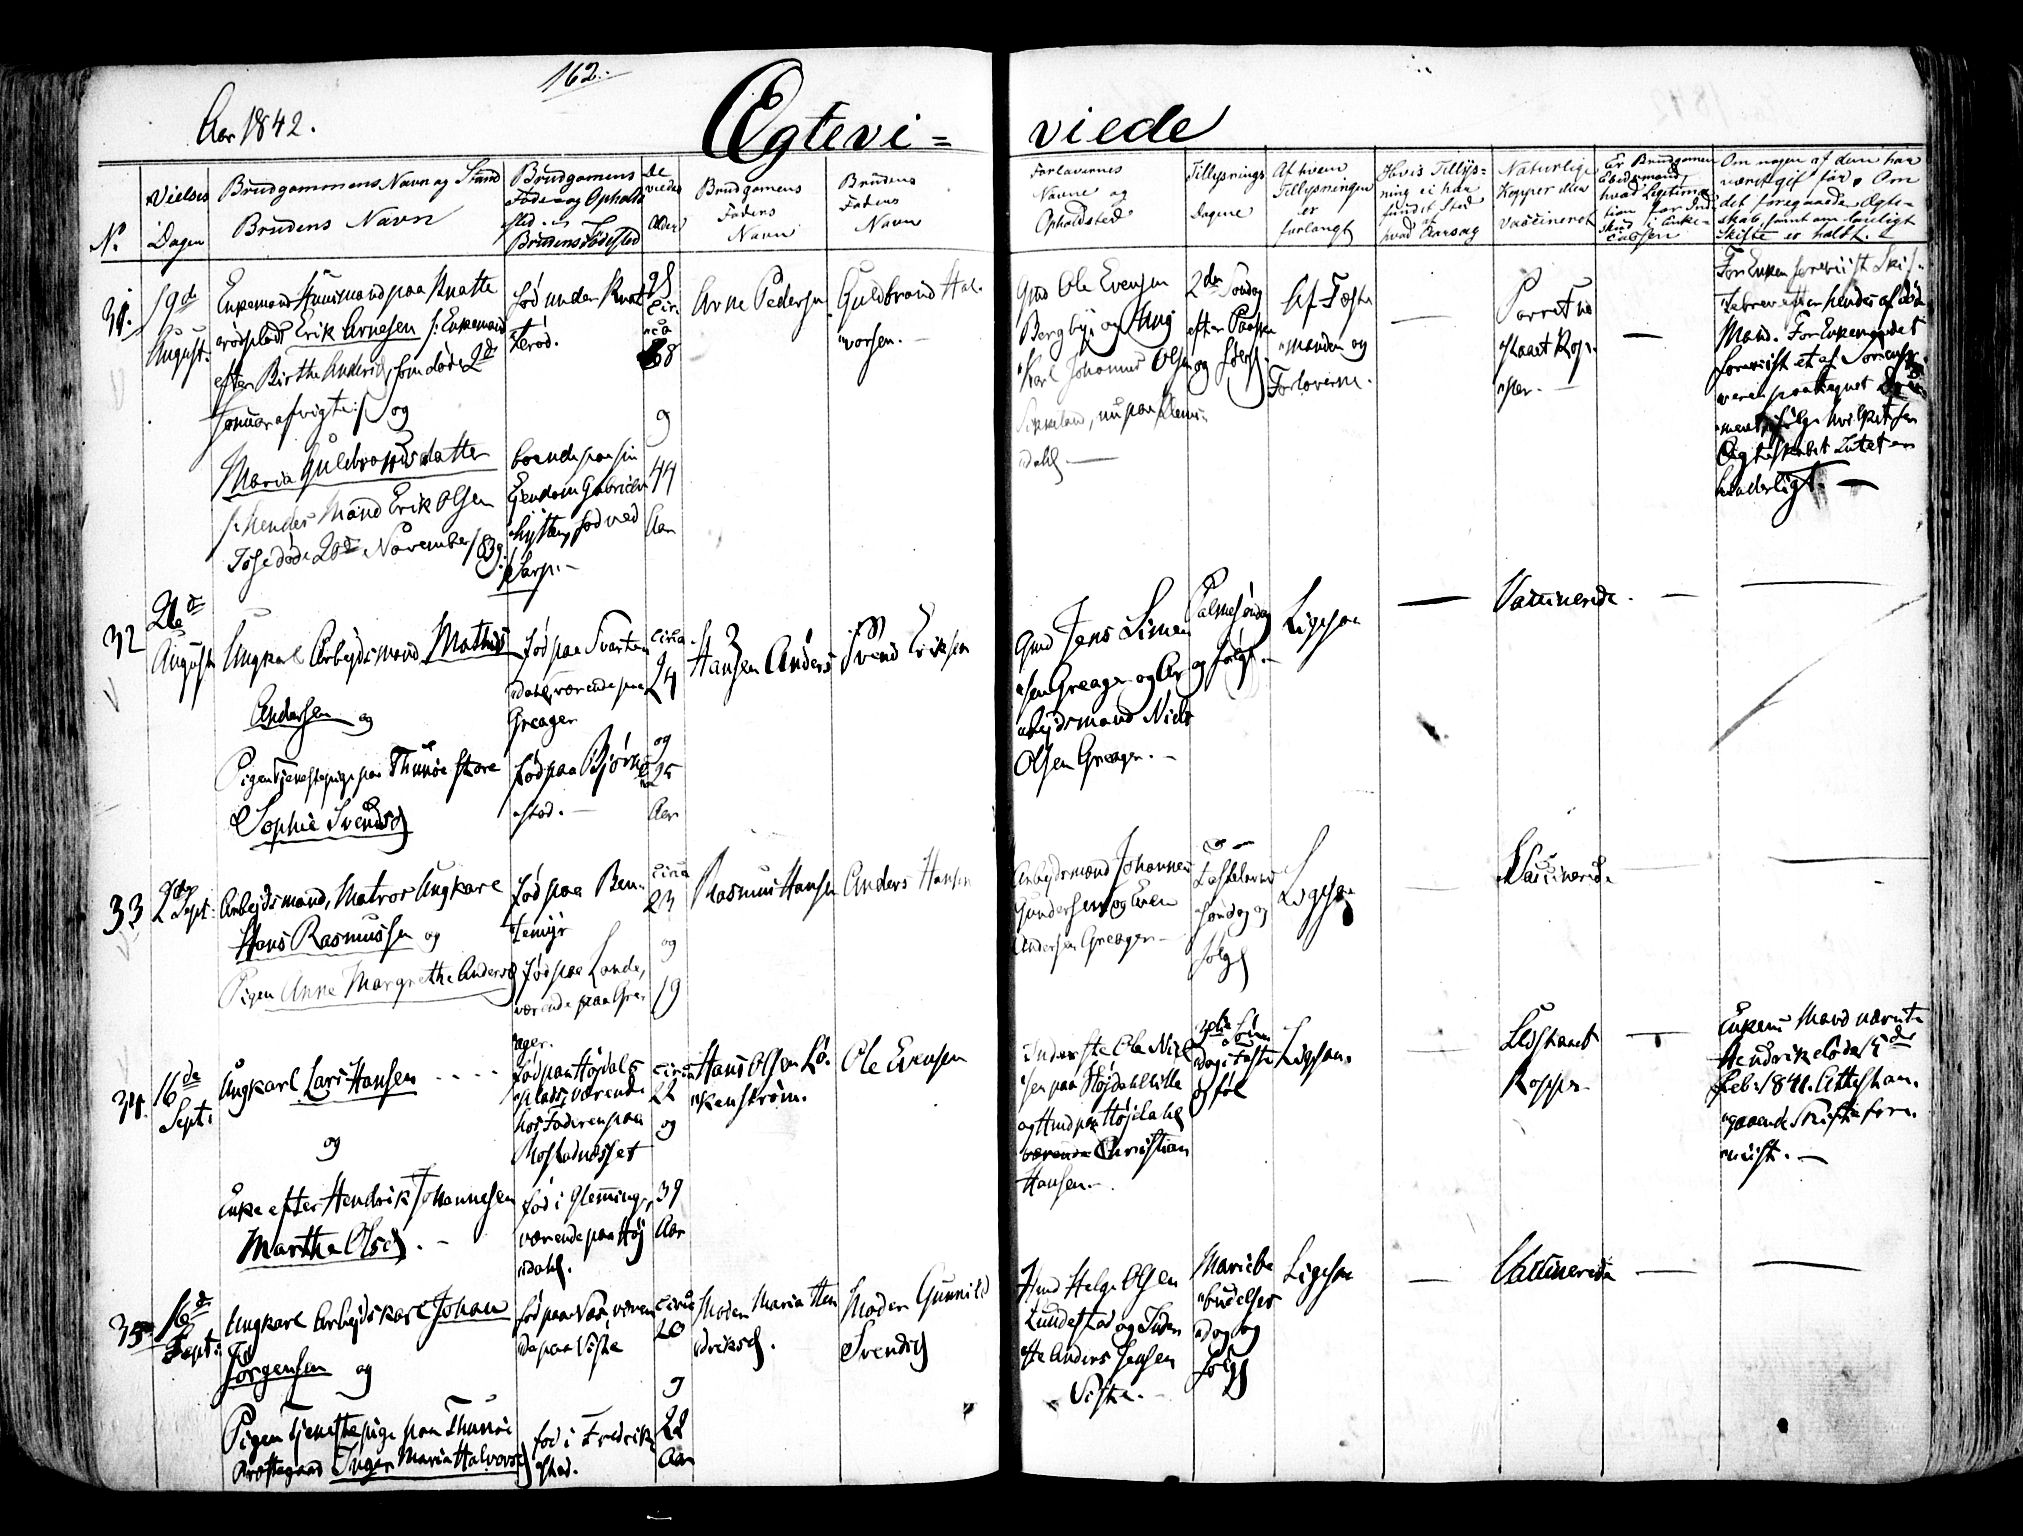 162.
Aar 1842.
Ægtevi=
viede
No
Vielses
Dagen
Brudgommens Navn og Stand
Brudens Navn
Brudgomens
Føde og Opholds
sted
Brudens Fødested
De
viedes
Alder
Brudgomens
Faders
Navn
Brudens
Faders
Navn
Forlovernes
Navne og
Opholdsted
Tillysnings
Dagene
Af hvem
Tillysningen
er
forlangt
Hvis Tillys=
ning ei har
fundet Sted
af
hvad Aarsag
Naturlige
Kopper eller
vaccineret
Er Brudgomen
Enkemand,
hvad Legitima
tion for Ind
skud i Enke-
cassen
Om nogen af dem har
været gift før. Om
det foregaaende Ægte-
skab, samt om lovligt
Skifte er holdt.
31.
19de
August.
Enkemand Huusmand paa
Erik Arnesen /: Enkemand
efter Birthe Andersd, som døde 2de
Januar afvigte :/ og
Maria Guldbrandsdatter
/: hendes Mand Erik Olsen
døde 20de November 1839.
fød under
boende paa sin
Eiendom Gabriels
hytten, fød ved
Sarp.
68
og
44
Aar
Arne Pedersen
Guldbrand Hal-
vorsen.
Gmd Ole Evensen
Bergby og Hmd
Karl Johannes Olsen
nu paa
dahl
2den Søndag
efter Paaske
og følg
Af Fæste
manden og
Forloverne.
staaet Kop-
per.
For Enken foreviist Skif-
tebrev efter hendes afdøde
Mand. For Enkemandet
foreviist et af Sorenskr
veren paategnet
ifølge hvilket
Ægteskabet Intet er
hinderligt.
32
26de
August
Ungkarl Arbeidsmand Mathis
Andersen og
Pigen Tjenestepige paa Thunøe store
Sophie Svendsd
fød paa Svarten
dahl, værende paa
Greager
fød paa Bjørne
stad.
circa
24
og
25
Aar
Hansen Anders
Svend Eriksen
Gmd Jens Simen
sen Greager og Ar
beidsmand Niels
Olsen Greager.
Palmesøndag
og følg.
Ligesaa
Vaccinerede.
33
2den Sept.
Arbeidsmand, Matros Ungkarl
Hans Rasmussen og
Pigen Anne Margrethe Andersd
fød paa Ben-
temyr
fød paa Lande,
værende paa Gre-
ager.
circa
23
og
19
Rasmus Hansen
Anders Hansen
Arbeidsmand Johannes
Gundersen og Even
Andersen Greager
Fastelavns
søndag og
følg
Ligesaa
Vaccinerede
34.
16de
Sept.
Ungkarl Lars Hansen
og
Enke efter Hendrik Johannesen
Martha Olsd.
fød paa Høidals
plads, værende
hos Faderen paa
Rostadnæsset
fød i Glemminge,
værende paa Høj
dahl.
circa
22
og
39
Aar
Hans Olsen Lø-
kenstrøm.
Ole Evensen
Inderste Ole Niel
sen paa Høidahl lille
og Hmd paa Høidahl
værende Christian
Hansen.
dag i Faste
og føl
Ligesaa.
Udstaaet
Kopper.
Enkens Mand nævnte
Hendrik døde 15de
Feb. 1841. Attest an-
gaaende Skifte fore-
viist.
35
16de
Sept.
Ungkarl Arbeidskarl Johan
Jørgensen og
Pigen Tjenestepige paa Thunøe
Præstegaard Inger Maria Halvorsd
fød paa Næs, væren
de paa Viste
fød i Fredrik
stad.
circa
20
og
22
Aar
Moder Maria Hen
driksd.
Moder Gunnild
Svendsd
Hmd Helge Olsen
Lundestad og Inder
ste Anders Jensen
Viste.
Mariæbe
budelses
dag og
følg
Ligesaa
Vaccinerede